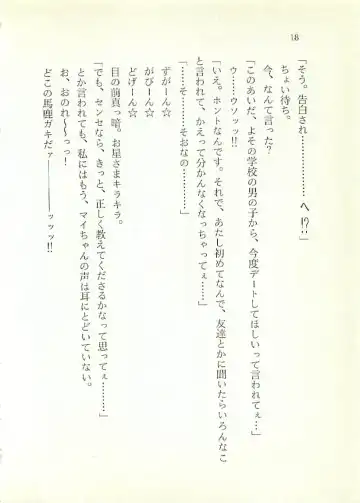 18
「そう。告白され…………へ!?」
ちょい待ち。
今、なんて言った？
「このあいだ、よその学校の男の子から、今度デートしてほしいって言われてぇ…」
ウ……ウソッッ!!
「いえ。ホントなんです。それで、あたし初めてなんで、友達とかに聞いたらいろんなこ
と言われて、かえって分かんなくなっちゃってぇ……」
「……そ……そおなの……」
ずがーん☆
がびーん☆
どげーん☆
目の前真っ暗。お星さまキラキラ。
「でも、センセなら、きっと、正しく教えてくださるかなって思ってぇ………」
とか言われても、私にはもう、マイちゃんの声は耳にとどいていない。
お、おのれ〜〜っっ！
どこの馬鹿ガキだァ――――ッッッ!!